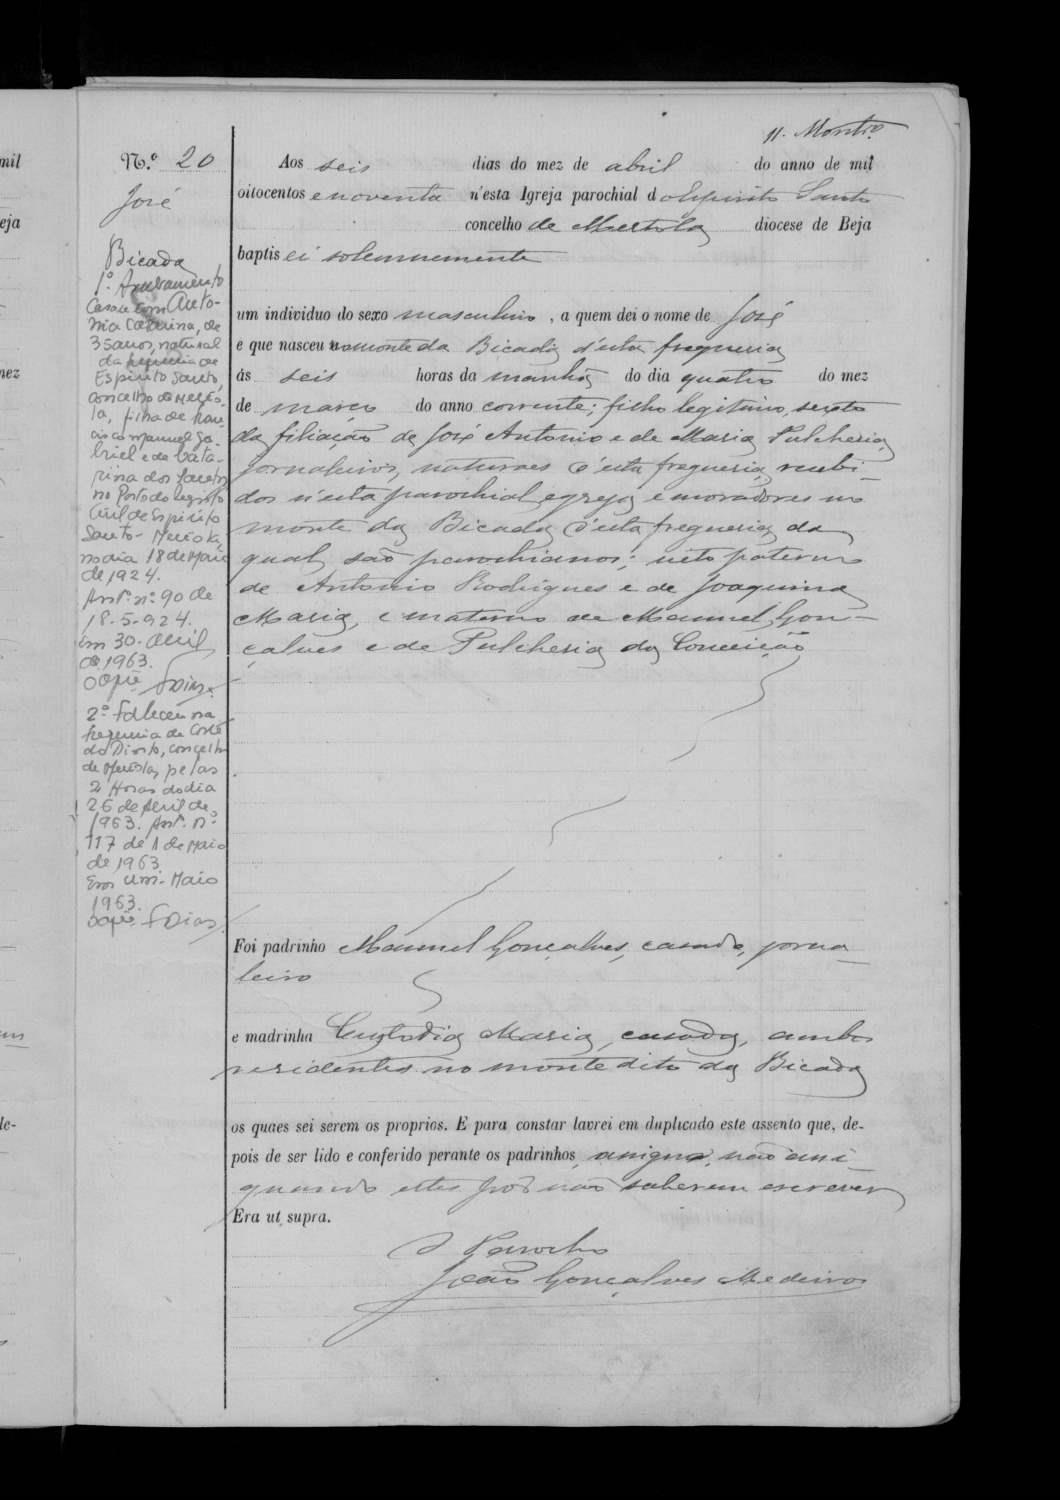 11. Montrº
N.º 20
José
Bicada
1.º Averbamento
Casou com Anto-
nia Catarina, de
35 anos, natural
da freguesia de
Espirito Santo,
concelho de Mérto-
la, filha de Fran-
cisco Manuel Ga-
briel e de Cata-
rina dos Santos
no Posto do Registo
Civil de Espirito
Santo - Mertola,
no dia 18 de Maio
de 1924.
Ass.º n.º 90 de
18-5-924.
Em 30 - Abril
de 1963.
O Dias.
2.º Faleceu na
freguesia de Corte
do Pinto, concelho
de Mertola, pelas
2 Horas do dia
26 de Abril de
1963. Ass.º n.º
117 de 1 de Maio
de 1963
Em um - Maio
1963.
Dias.
Aos seis dias do mez de abril do anno de mil
oitocentos e noventa n'esta Igreja parochial do Espirito Santo
concelho de Mertola diocese de Beja
baptisei solemnemente
um individuo do sexo masculino, a quem dei o nome de José
e que nasceu no monte da Bicada d'esta freguesia
ás seis horas da manhã do dia quatro do mez
de março do anno corrente; filho legitimo, sexto
da filiação de José Antonio e de Maria Pulcheria,
jornaleiros, naturaes d'esta freguesia, recebi-
dos n'esta parochial egreja e moradores no
monte da Bicada d'esta freguesia, da
qual são parochianos; neto paterno
de Antonio Rodrigues e de Joaquina
Maria, e materno de Manuel Gon-
çalves e de Pulcheria da Conceição
Foi padrinho Manuel Gonçalves, casado, jorna-
leiro
e madrinha Custodia Maria, casada, ambos
residentes no monte dito da Bicada
os quaes sei serem os proprios. E para constar lavrei em duplicado este assento que, de-
pois de ser lido e conferido perante os padrinhos, assigno, não assi-
gnando estes por não saberem escrever
Era ut supra.
O Parocho
João Gonçalves Medeiros